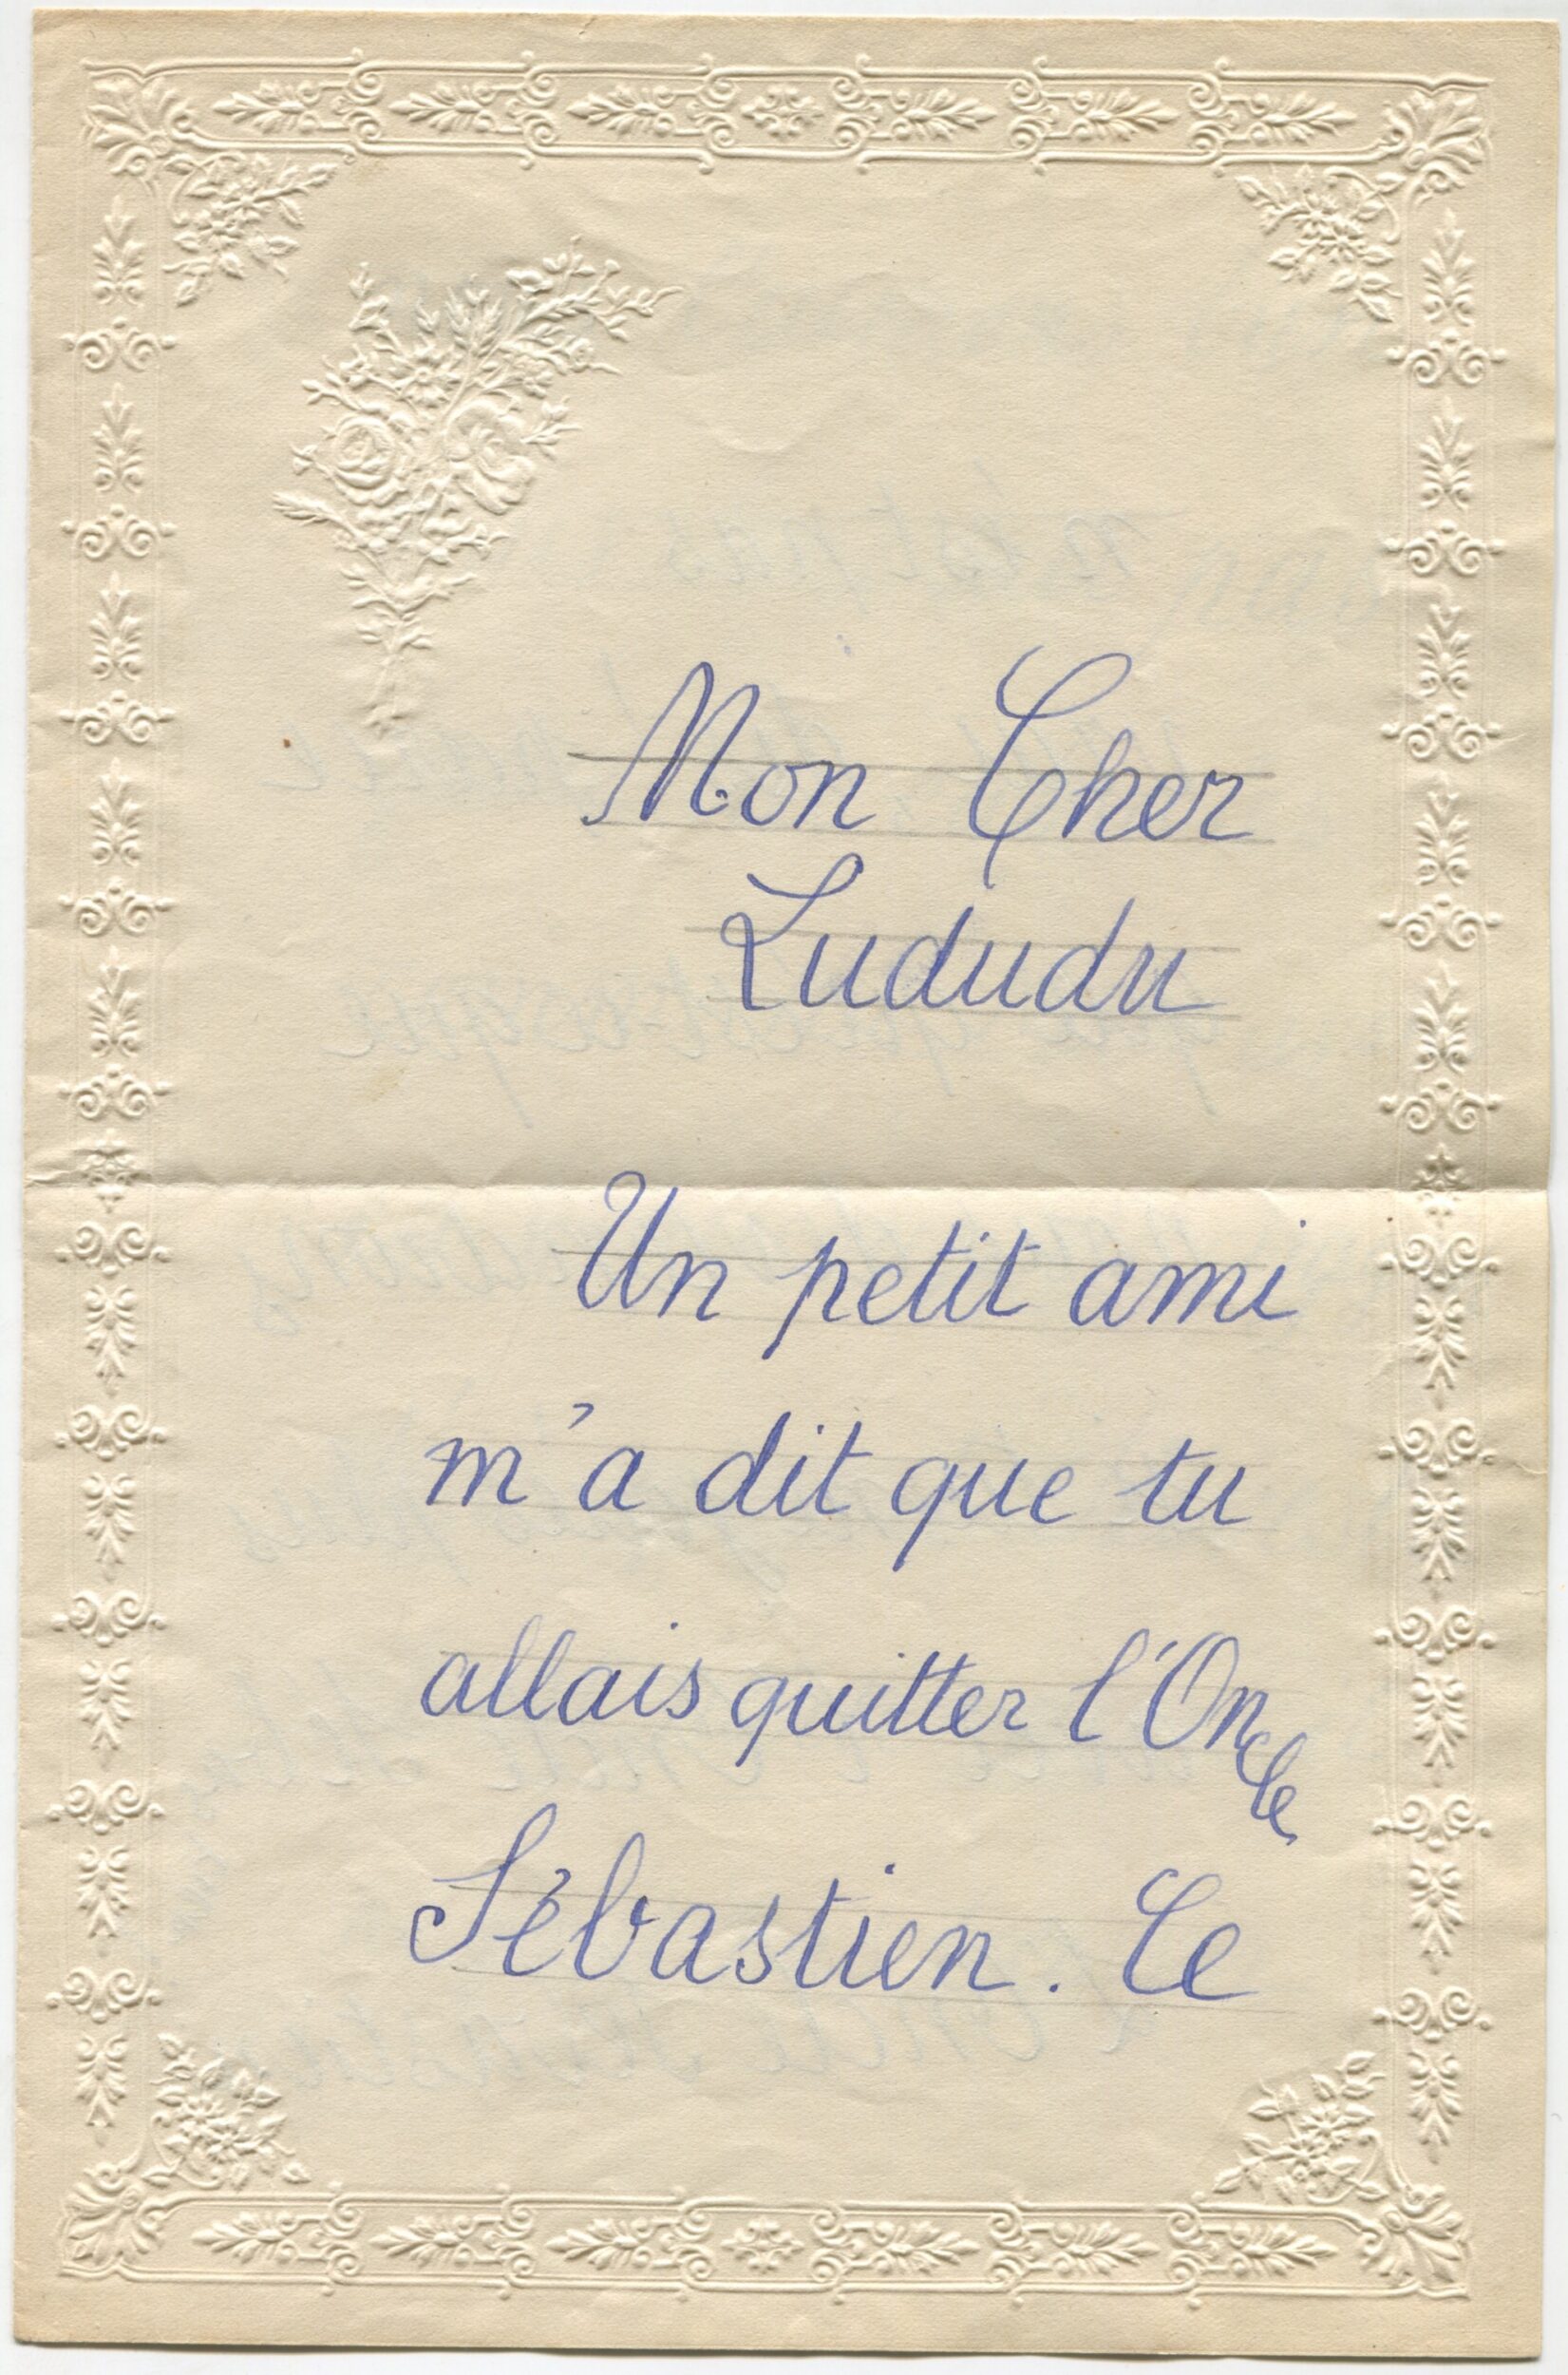 Mon Cher
Lududu
Un petit ami
m'a dit que tu
allais quitter l'Oncle
Sébastien. Ce